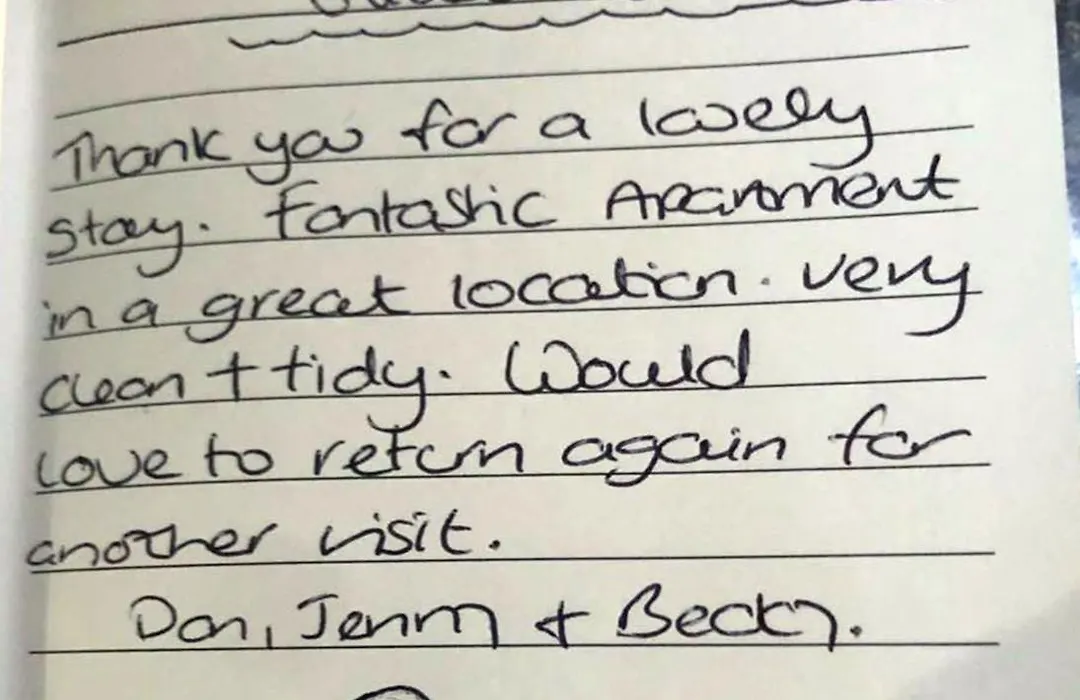 Thank you for a lovely
stay. Fantastic Apartment
in a great location. Very
clean + tidy. Would
love to return again for
another visit.
Dan, Jenny + Becky.